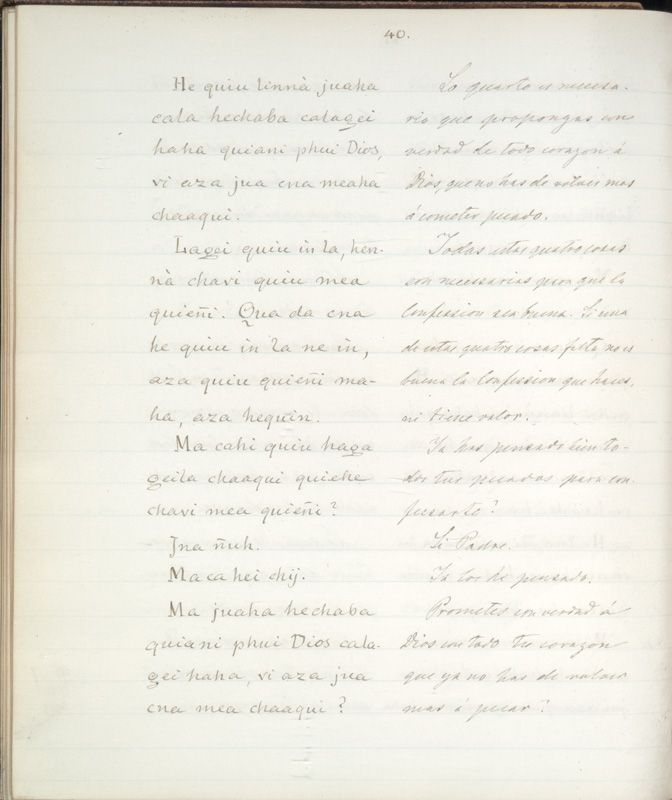 40.
He quiu tinnà juaha
cala hechaba calagei
haha quiani phui Dios,
vi aza jua cna meaha
chaaqui.
Lagei quiu in la, hen-
nà chavi quiu mea
quieñi. Qua da cna
he quiu in la ne in,
aza quiu quieñi ma-
ha, aza hequin.
Ma cahi quiu haga
geila chaaqui quiehe
chavi mea quieñi?
Jna ñuh.
Ma ca hei chij.
Ma juaha hechaba
quiani phui Dios cala-
gei haha, vi aza jua
cna mea chaaqui?
Lo quarto es necesa-
rio que propongas con
verdad de todo corazon á
Dios, que no has de volver mas
á cometer pecado.
Todas estas quatro cosas
son necesarias para que la
Confession sea buena. Si una
de estas quatro cosas falta, no es
buena la Confession que haces,
ni tiene valor.
Ya has pensado bien to-
dos tus pecados para con-
fesarte?
Si Padre.
Ya los he pensado.
Prometes con verdad á
Dios con todo tu corazon
que ya no has de volver
mas á pecar?